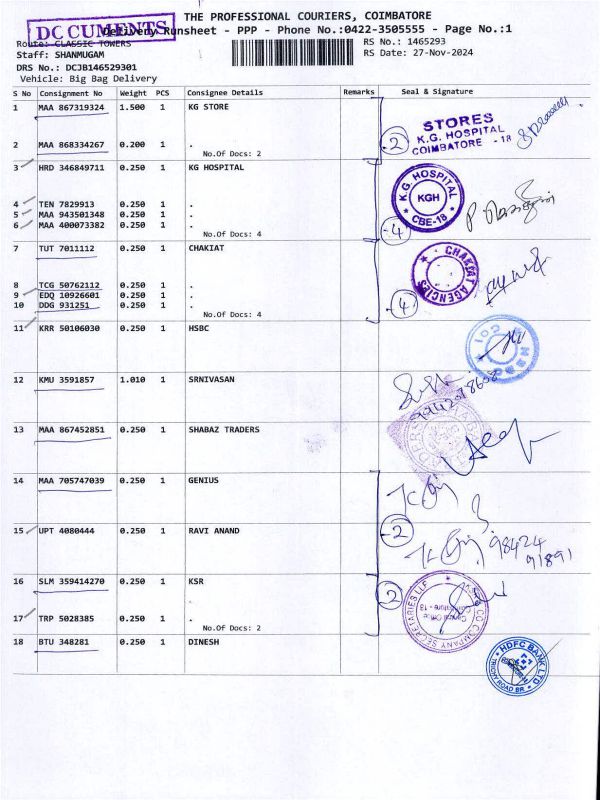 THE PROFESSIONAL COURIERS, COIMBATORE
DOCUMENTS
Delivery Runsheet - PPP - Phone No.:0422-3505555 - Page No.:1
Route: CLASSIC TOWERS
RS No.: 1465293
Staff: SHANMUGAM
RS Date: 27-Nov-2024
DRS No.: DCJB146529301
Vehicle: Big Bag Delivery
S No Consignment No Weight PCS Consignee Details Remarks Seal & Signature
1 MAA 867319324 1.500 1 KG STORE
STORES
K.G. HOSPITAL
COIMBATORE - 18
2 MAA 868334267 0.200 1 .
No.Of Docs: 2
2
3 HRD 346849711 0.250 1 KG HOSPITAL
K.G. HOSPITAL
KGH
CBE-18
4 TEN 7829913 0.250 1 .
5 MAA 943501348 0.250 1 .
6 MAA 400073382 0.250 1 .
No.Of Docs: 4
4
7 TUT 7011112 0.250 1 CHAKIAT
CHAKIAT AGENCIES
8 TCG 50762112 0.250 1 .
9 EDQ 10926601 0.250 1 .
10 DDG 931251 0.250 1 .
No.Of Docs: 4
4
11 KRR 50106030 0.250 1 HSBC
12 KMU 3591857 1.010 1 SRNIVASAN
13 MAA 867452851 0.250 1 SHABAZ TRADERS
14 MAA 705747039 0.250 1 GENIUS
2
15 UPT 4080444 0.250 1 RAVI ANAND
98424
91891
16 SLM 359414270 0.250 1 KSR
.
2
17 TRP 5028385 0.250 1 .
No.Of Docs: 2
18 BTU 348281 0.250 1 DINESH
HDFC BANK LTD
TRICHY ROAD BR.